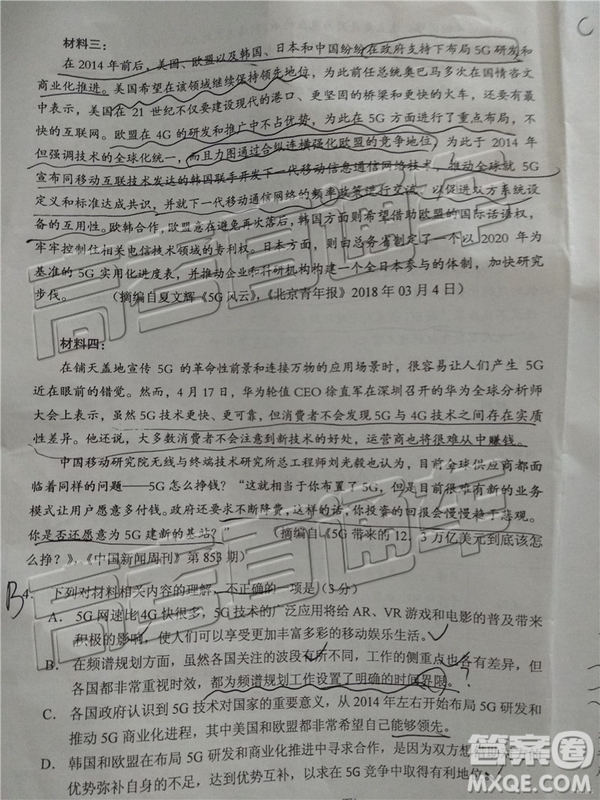 材料三：
在 2014 年前后，美国、欧盟以及韩国、日本和中国纷纷在政府支持下布局 5G 研发和
商业化推进。美国希望在该领域继续保持领先地位，为此前任总统奥巴马多次在国情咨文
中表示，美国在 21 世纪不仅要建设现代的港口、更坚固的桥梁和更快的火车，还要有最
快的互联网。欧盟在 4G 的研发和推广中不占优势，为此在 5G 方面进行了重点布局，不
但强调技术的全球化统一，而且力图通过合纵连横强化欧盟的竞争地位，为此于 2014 年
宣布同移动互联技术发达的韩国联手开发下一代移动信息通信网络技术，推动全球就 5G
定义和标准达成共识，并就下一代移动通信网络的频率政策进行交流，以促进双方系统设
备的互用性。欧韩合作，欧盟意在避免再次落后，韩国方面则希望借助欧盟的国际话语权，
牢牢控制住相关电信技术领域的专利权。日本方面，则由总务省制定了一个以 2020 年为
基准的 5G 实用化进度表，并推动企业和科研机构构建一个全日本参与的体制，加快研究
步伐。 （摘编自夏文辉《5G 风云》，《北京青年报》2018 年 03 月 4 日）
材料四：
在铺天盖地宣传 5G 的革命性前景和连接万物的应用场景时，很容易让人们产生 5G
近在眼前的错觉。然而，4 月 17 日，华为轮值 CEO 徐直军在深圳召开的华为全球分析师
大会上表示，虽然 5G 技术更快、更可靠，但消费者不会发现 5G 与 4G 技术之间存在实质
性差异。他还说，大多数消费者不会注意到新技术的好处，运营商也将很难从中赚钱。
中国移动研究院无线与终端技术研究所总工程师刘光毅也认为，目前全球供应商都面
临着同样的问题——5G 怎么挣钱？“这就相当于你布置了 5G，但是目前很难有新的业务
模式让用户愿意多付钱。政府还要求不断降费，这样的话，你投资的回报会慢慢趋于悲观。
你是否还愿意为 5G 建新的基站？” （摘编自《5G 带来的 12．3 万亿美元到底该怎
么挣？》，《中国新闻周刊》第 853 期）
B 4. 下列对材料相关内容的理解，不正确的一项是（3 分）
A． 5G 网速比 4G 快很多，5G 技术的广泛应用将给 AR、VR 游戏和电影的普及带来
积极的影响，使人们可以享受更加丰富多彩的移动娱乐生活。
B． 在频谱规划方面，虽然各国关注的波段有所不同，工作的侧重点也各有差异，但
各国都非常重视时效，都为频谱规划工作设置了明确的时间界限。
C． 各国政府认识到 5G 技术对国家的重要意义，从 2014 年左右开始布局 5G 研发和
推动 5G 商业化进程，其中美国和欧盟都非常希望自己能够领先。
D． 韩国和欧盟在布局 5G 研发和商业化推进中寻求合作，是因为双方想借助
优势弥补自身的不足，达到优势互补，以求在 5G 竞争中取得有利地位。
高考直通车
高考直通车
答案圈
MXQE.COM